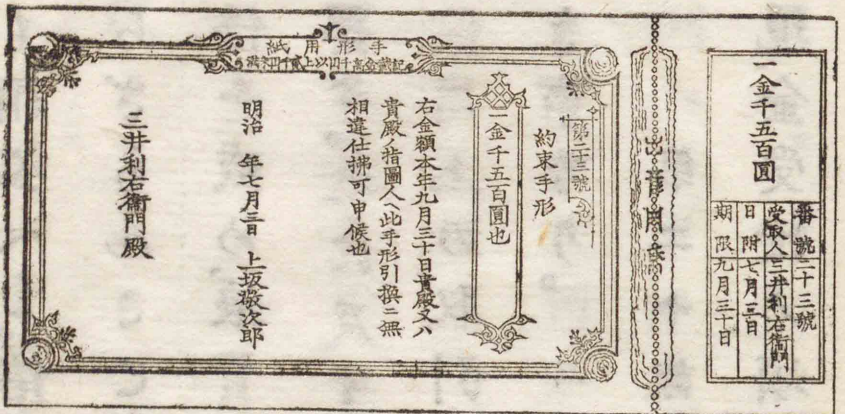 一金千五百圓
番號 二十三號
受取人 三井利右衞門
日附 七月三日
期限 九月三十日
手形用紙
第二十三號
約束手形
一金千五百圓也
右金額本年九月三十日貴殿又ハ
貴殿ノ指圖人ヘ此手形引換ニ無
相違仕拂可申候也
明治 年七月三日 上坂敬次郎
三井利右衞門殿